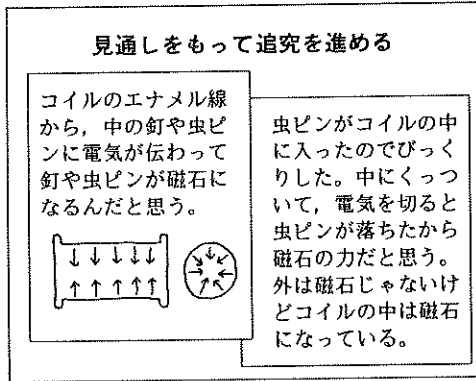 見通しをもって追究を進める
コイルのエナメル線
から，中の釘や虫ピ
ンに電気が伝わって
釘や虫ピンが磁石に
なるんだと思う。
虫ピンがコイルの中
に入ったのでびっく
りした。中にくっつ
いて，電気を切ると
虫ピンが落ちたから
磁石の力だと思う。
外は磁石じゃないけ
どコイルの中は磁石
になっている。